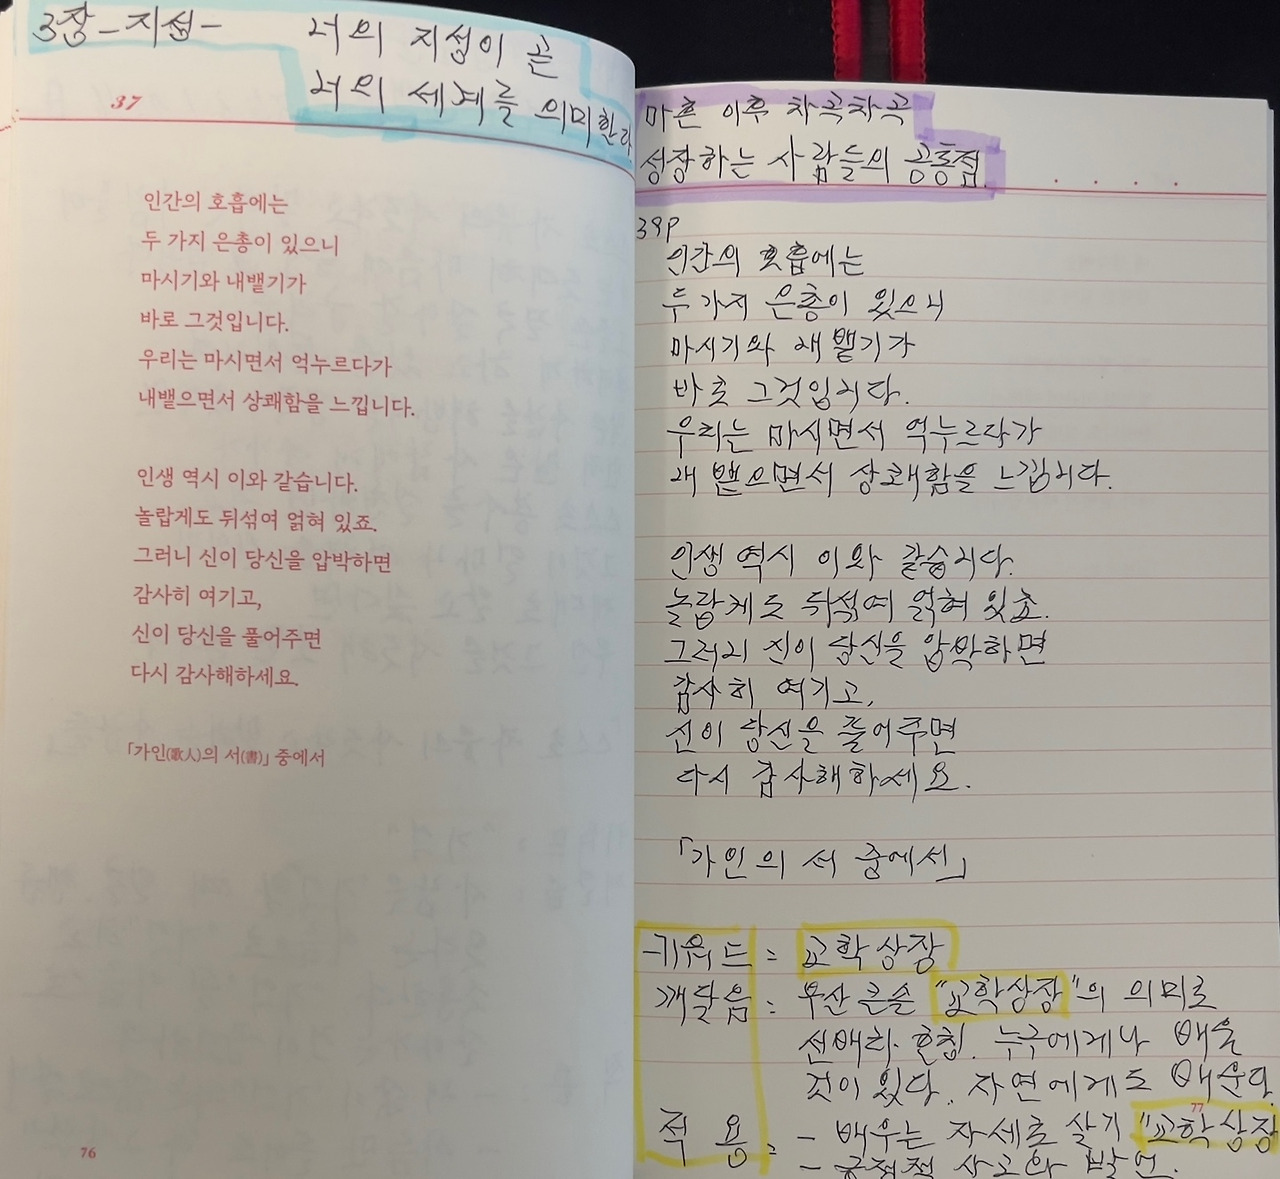 3장-지성-
너의 지성이 곧
너의 세계를 의미한다
37
인간의 호흡에는
두 가지 은총이 있으니
마시기와 내뱉기가
바로 그것입니다.
우리는 마시면서 억누르다가
내뱉으면서 상쾌함을 느낍니다.
인생 역시 이와 같습니다.
놀랍게도 뒤섞여 얽혀 있죠.
그러니 신이 당신을 압박하면
감사히 여기고,
신이 당신을 풀어주면
다시 감사해하세요.
「가인(歌人)의 서(書)」 중에서
76
마흔 이후 차곡차곡
성장하는 사람들의 공통점.
39p
인간의 호흡에는
두 가지 은총이 있으니
마시기와 내뱉기가
바로 그것입니다.
우리는 마시면서 억누르다가
내뱉으면서 상쾌함을 느낍니다.
인생 역시 이와 같습니다.
놀랍게도 뒤섞여 얽혀 있죠.
그러니 신이 당신을 압박하면
감사히 여기고,
신이 당신을 풀어주면
다시 감사해하세요.
「가인의 서 중에서」
키워드 : 교학상장
깨달음 : 우산 큰슨 "교학상장"의 의미로
선배라 호칭. 누구에게나 배울
것이 있다. 자연에게도 배운다.
77
적용 : - 배우는 자세로 살기 "교학상장
- 긍정적 사고와 발언.